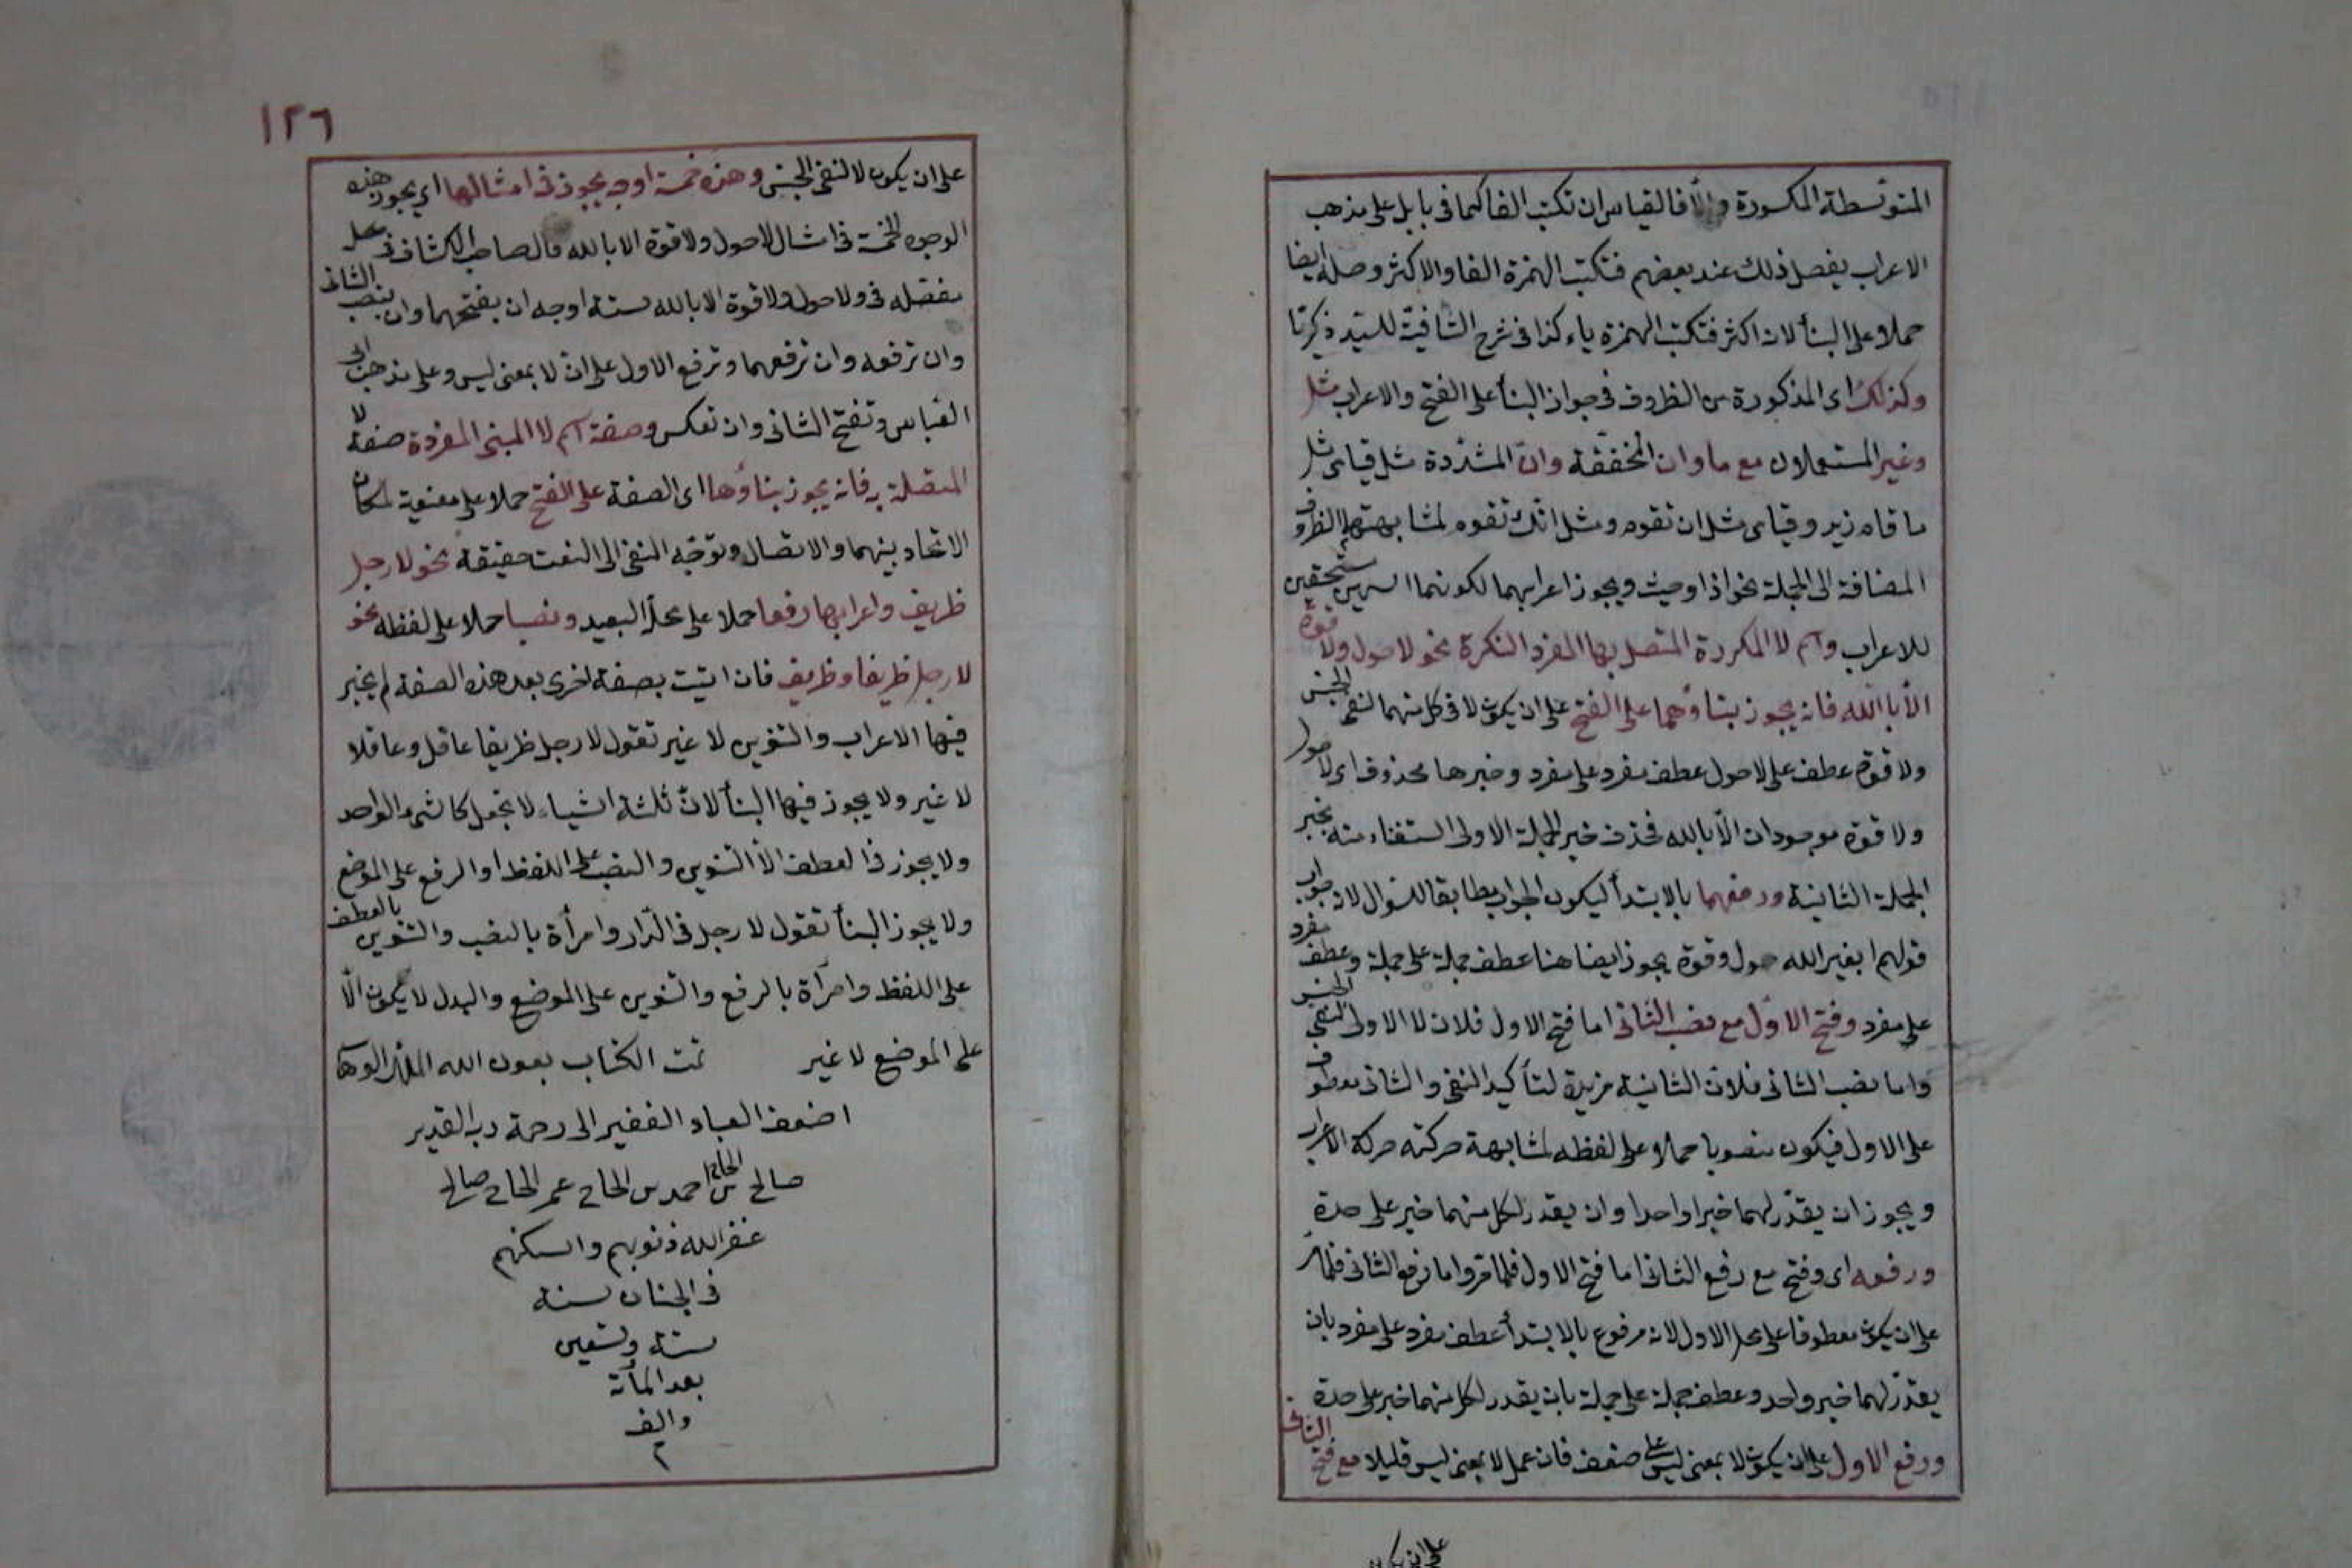 المتوسطة المكسورة والا فالقياس ان تكتب الفا كما فى بابل على مذهب
الاعراب يفصل ذلك عند بعضهم فتكتب الهمزة الفا والاكثر وصله ايضا
حملا على البنأ لان اكثر فتكتب الهمزة ياء كذا فى شرح الشافية للسيد
وكذلك اى المذكورة من الظروف فى جواز البنأ على الفتح والاعراب مثل
وغير المستعملان مع ما وان المخففة وان المشددة مثل قيامى مثل
ما قام زيد وقيامى مثل ان تقوم ومثل انك تقوم لمشابهتهما الظروف
المضافة الى الجملة نحو اذ او حيث ويجوز اعرابهما لكونهما اسمين مستحقين
للاعراب واسم لا المكررة المتصل بها المفرد النكرة نحو لا حول ولا قوة
الا بالله فانه يجوز بنأوهما على الفتح على ان يكون لا فى كل منهما لنفى الجنس
ولا قوة عطف على لا حول عطف مفرد على مفرد وخبرها محذوف اى لا حول
ولا قوة موجودان الا بالله فحذف خبر الجملة الاولى استغناء منه بخبر
الجملة الثانية ورفعهما بالابتدأ ليكون الجواب مطابقا للسؤال لانه جواب
قولهم ا بغير الله حول وقوة يجوز ايضا هنا عطف جملة على جملة وعطف مفرد
على مفرد وفتح الاول مع نصب الثانى اما فتح الاول فلان لا الاولى لنفى الجنس
واما نصب الثانى فلان الثانية مزيدة لتأكيد النفى والثانى معطوف
على الاول فيكون منصوبا حملا على لفظه لمشابهة حركته حركة الاعراب
ويجوز ان يقدر لهما خبرا واحدا وان يقدر لكل منهما خبر على حدة
ورفعه اى وفتح مع رفع الثانى اما فتح الاول فلما مر واما رفع الثانى فلما مر
على ان يكون معطوفا على محل الاول لانه مرفوع بالابتدأ عطف مفرد على مفرد بان
يقدر لهما خبر واحد وعطف جملة على جملة بان يقدر لكل منهما خبر على حدة
ورفع الاول على ان يكون لا بمعنى ليس على ضعف فان عمل لا بمعنى ليس قليلا مع فتح الثانى
على ان يكون
١٢٦
على ان يكون لا لنفى الجنس وهذه خمسة اوجه يجوز فى امثالها اى يجوز هذه
الوجوه الخمسة فى امثال لا حول ولا قوة الا بالله قال صاحب الكشاف فى
مفصله فى ولا حول ولا قوة الا بالله ستة اوجه ان يفتحهما وان ينصب الثانى
وان ترفعه وان ترفعهما وترفع الاول على ان لا بمعنى ليس وعلى مذهب ابى
العباس وتفتح الثانى وان تعكس وصفة اسم لا المبنى المفردة صفة لا
المتصلة به فانه يجوز بنأوها اى الصفة على الفتح حملا على منعوته لمكان
الاتحاد بينهما والاتصال وتوجه النفى الى النعت حقيقة نحو لا رجل
ظريف واعرابها رفعا حملا على محله البعيد ونصبا حملا على لفظه نحو
لا رجل ظريفا وظريف فان اتيت بصفة اخرى بعد هذه الصفة لم يجز
فيها الا الاعراب والتنوين لا غير تقول لا رجل ظريفا عاقل وعاقلا
لا غير ولا يجوز فيها البنأ لان ثلثة اشياء لا تجعل كا شىء الواحد
ولا يجوز فى العطف الا التنوين والنصب على اللفظ او الرفع على الموضع
ولا يجوز البنأ تقول لا رجل فى الدار وامرأة بالنصب والتنوين بالعطف
على اللفظ وامرأة بالرفع والتنوين على الموضع والبدل لا يكون الا
على الموضع لا غير تمت الكتاب بعون الله الملك الوهاب
اضعف العباد الفقير الى رحمة رب القدير
صالح بن الحاج احمد بن الحاج عمر الحاج صالح
غفر الله ذنوبهم واسكنهم
فى الجنان سنة
ستة وتسعين
بعد المأة
والف